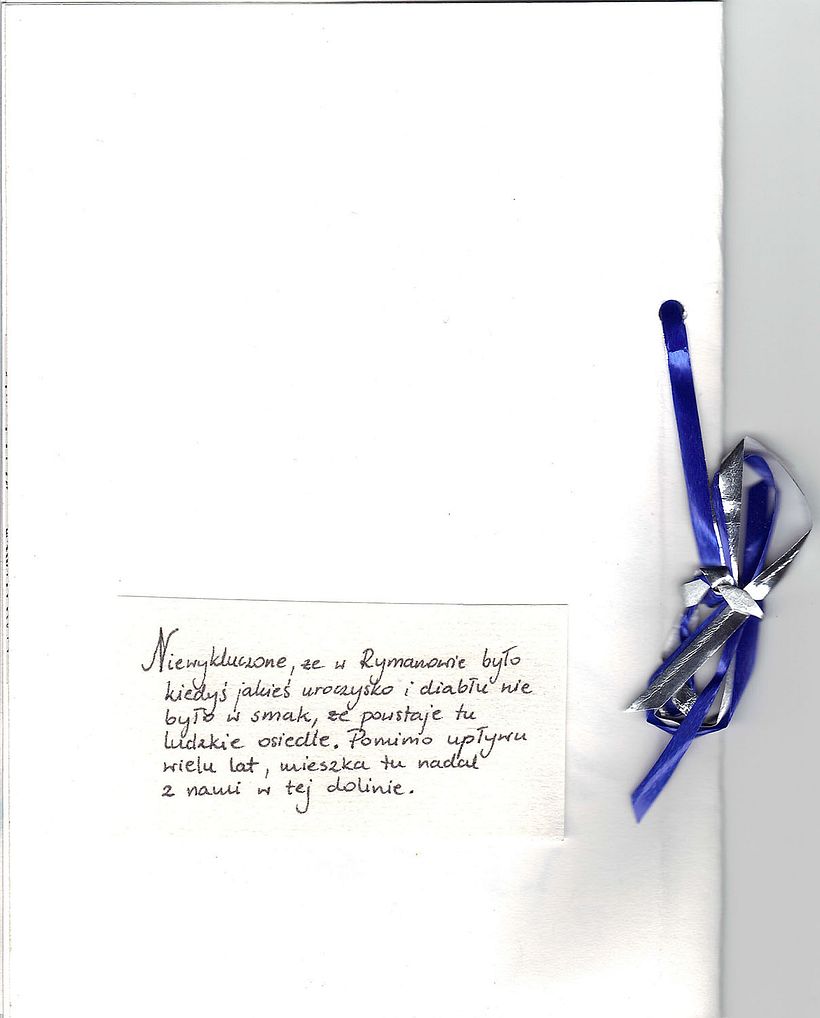 Niewykluczone, że w Rymanowie było
kiedyś jakieś uroczysko i diabłu nie
było w smak, że powstaje tu
ludzkie osiedle. Pomimo upływu
wielu lat, mieszka tu nadal
z nami w tej dolinie.